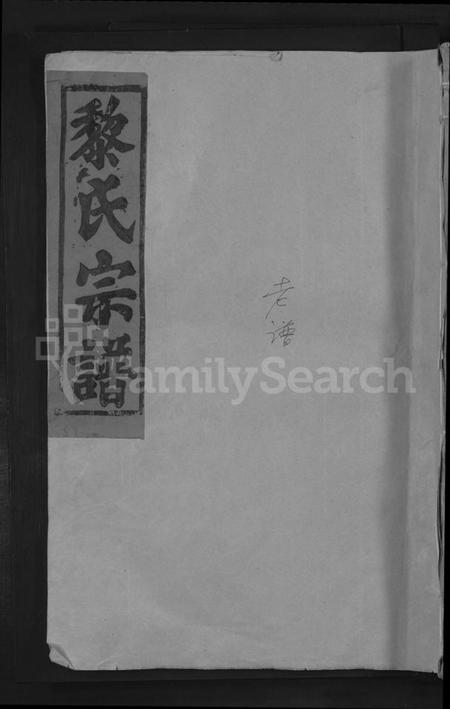 黎氏宗譜
老谱
FamilySearch